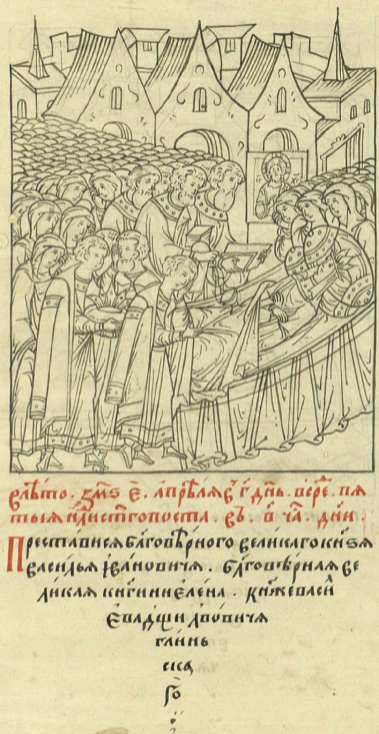 влѣто . ҂зм҃ѕ е҃ . апрѣля въ г҃ днь . въ сре҃ . пя
тыя нⷣли ст҃го поста . въ . в҃ ча҃ . дни .
Преставися благовѣрного великаго кн҃ѕя
василья ивановичя . благовѣрная ве
ликая кнꙗгини елена . княже васи
ева дщи лвовичя
глинь
ска
го